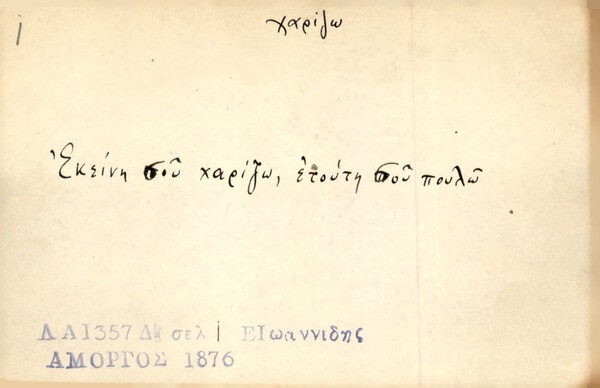 χαρίζω
Ἐκείνη σοῦ χαρίζω, ἐτούτη σοῦ πουλῶ
ΛΑ1357 Δ σελ 1 ΕΙωαννιδης
ΑΜΟΡΓΟΣ 1876